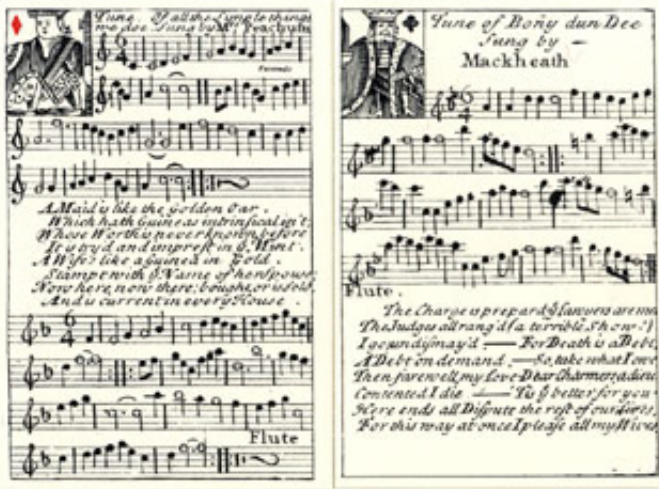 Tune. Of all the Simple things
we doe. Sung by Mrs. Peachum
A Maid is like the Golden Oar.
Which hath Guineas intrinsical in't,
Whose Worth is never known before
It is try'd and imprest in ẙ Mint.
A Wife's like a Guinea in Gold.
Stampt with ẙ Name of her spouse
Now here, now there; bought, or is sold,
And is current in every House.
Flute
Tune of Bony dun Dee
Sung by —
Mackheath
Flute.
The Charge is prepar'd; ẙ Lawyers are me
The Judges all rang'd (a terrible Show:)
I go undismay'd — For Death is a Debt,
A Debt on demand, — So, take what I owe
Then farewell, my Love — Dear Charmers, adieu
Contented I die — 'Tis ẙ better for you
Here ends all Dispute the rest of our lives,
For this way at once I please all my Wives